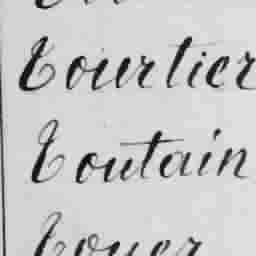 Tourtier
Toutain